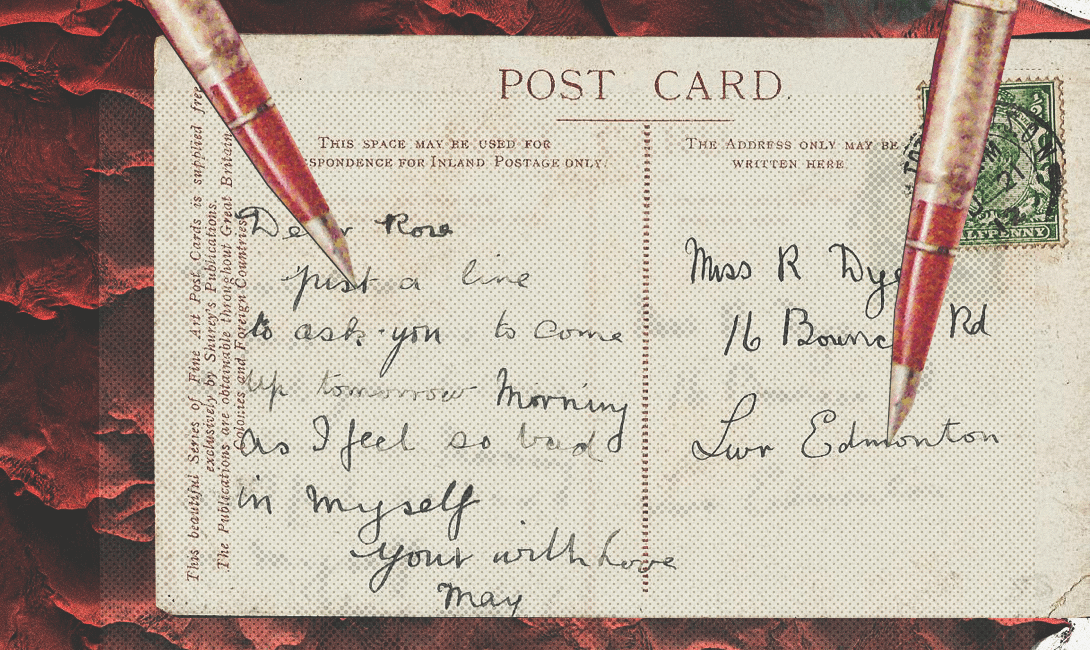 POST CARD
THIS SPACE MAY BE USED FOR
SPONDENCE FOR INLAND POSTAGE ONLY.
THE ADDRESS ONLY MAY BE
WRITTEN HERE
This beautiful Series of Fine Art Post Cards is supplied free
exclusively by Shurey's Publications.
The Publications are obtainable throughout Great Britain,
Colonies and Foreign Countries.
Dear Rose
Just a line
to ask you to come
up tomorrow Morning
as I feel so bad
in myself
your with Love
May
Miss R
16 Rd
Lwr Edmonton
HALFPENNY